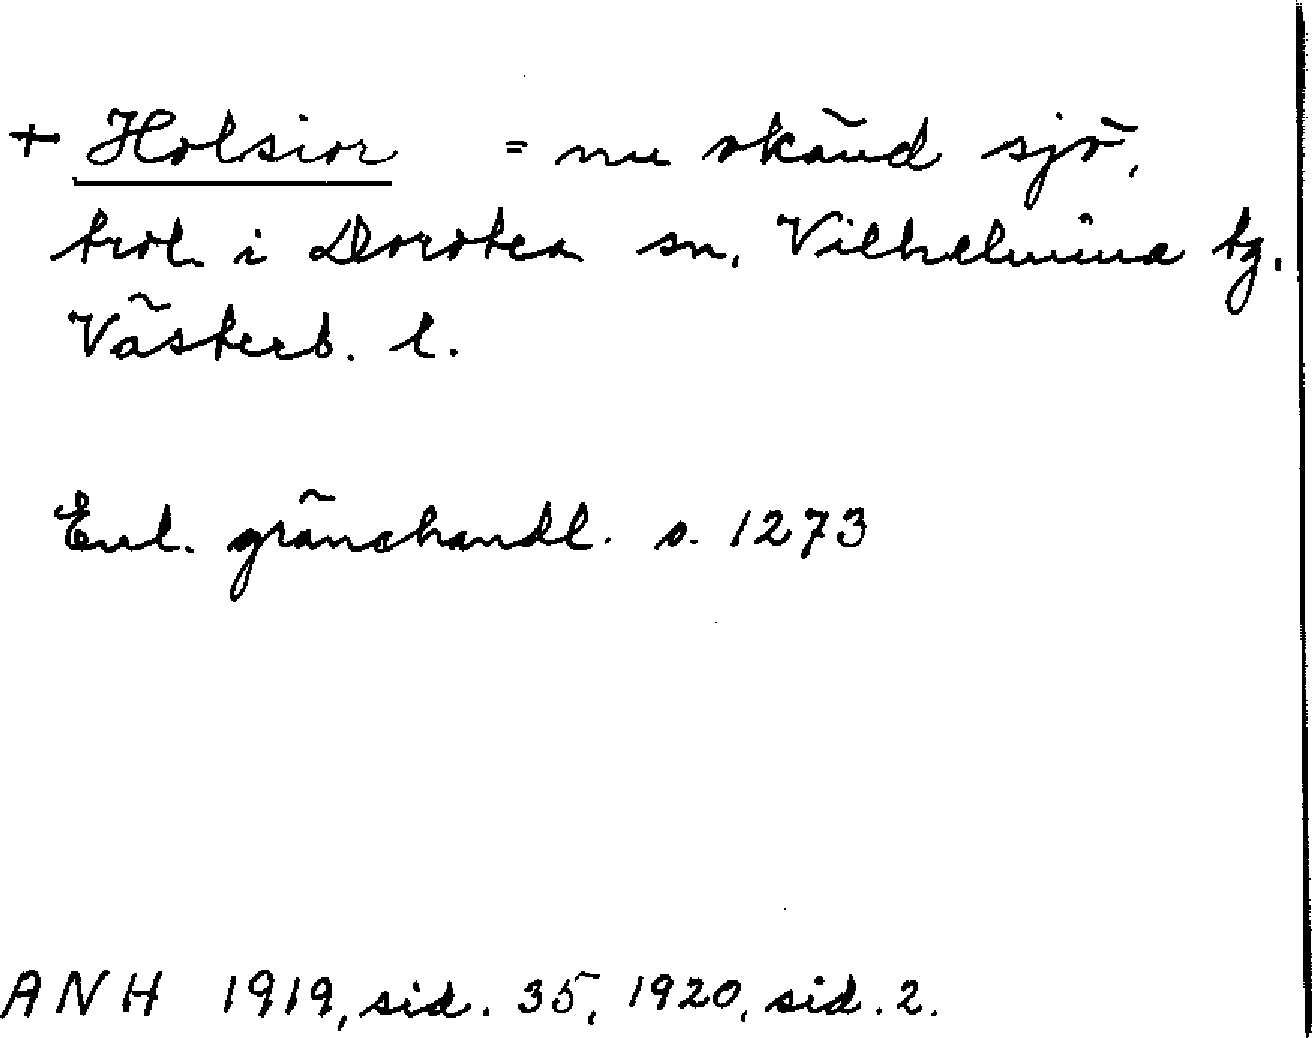 + Holsior = nu okänd sjö,
trol. i Dorotea sn, Vilhelmina tg.
Västerb. l.
Enl. gränshandl. s. 1273
ANH 1919, sid. 35, 1920, sid. 2.